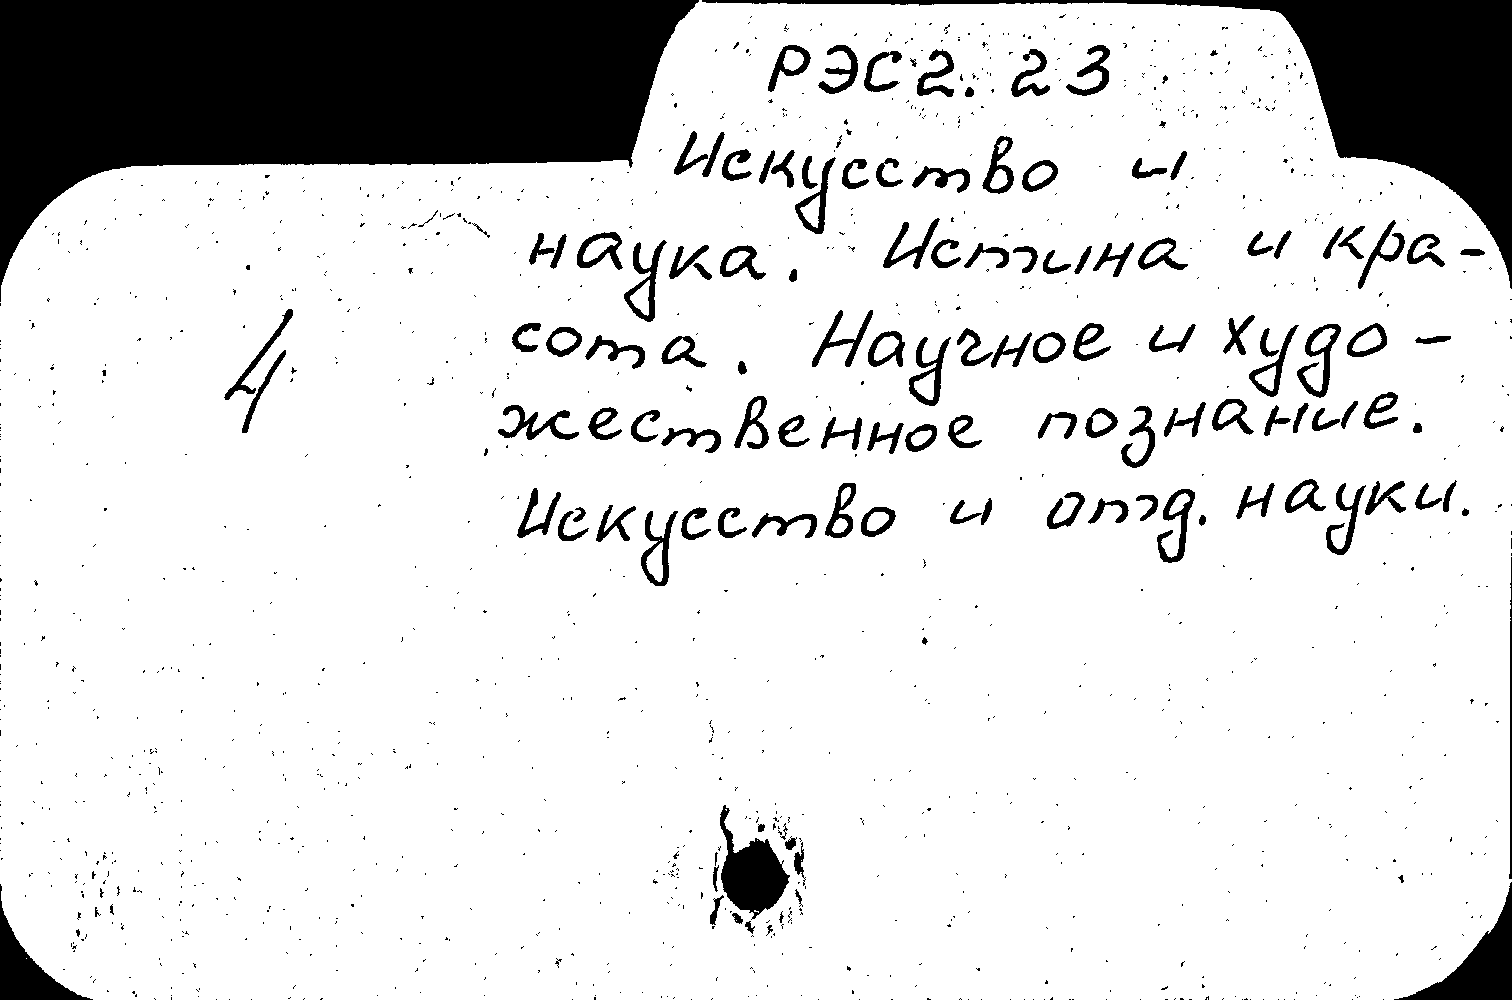 РЭС 2. 23
Искусство и
наука. Истина и кра-
сота. Научное и худо-
жественное познание.
Искусство и отд. науки.
4